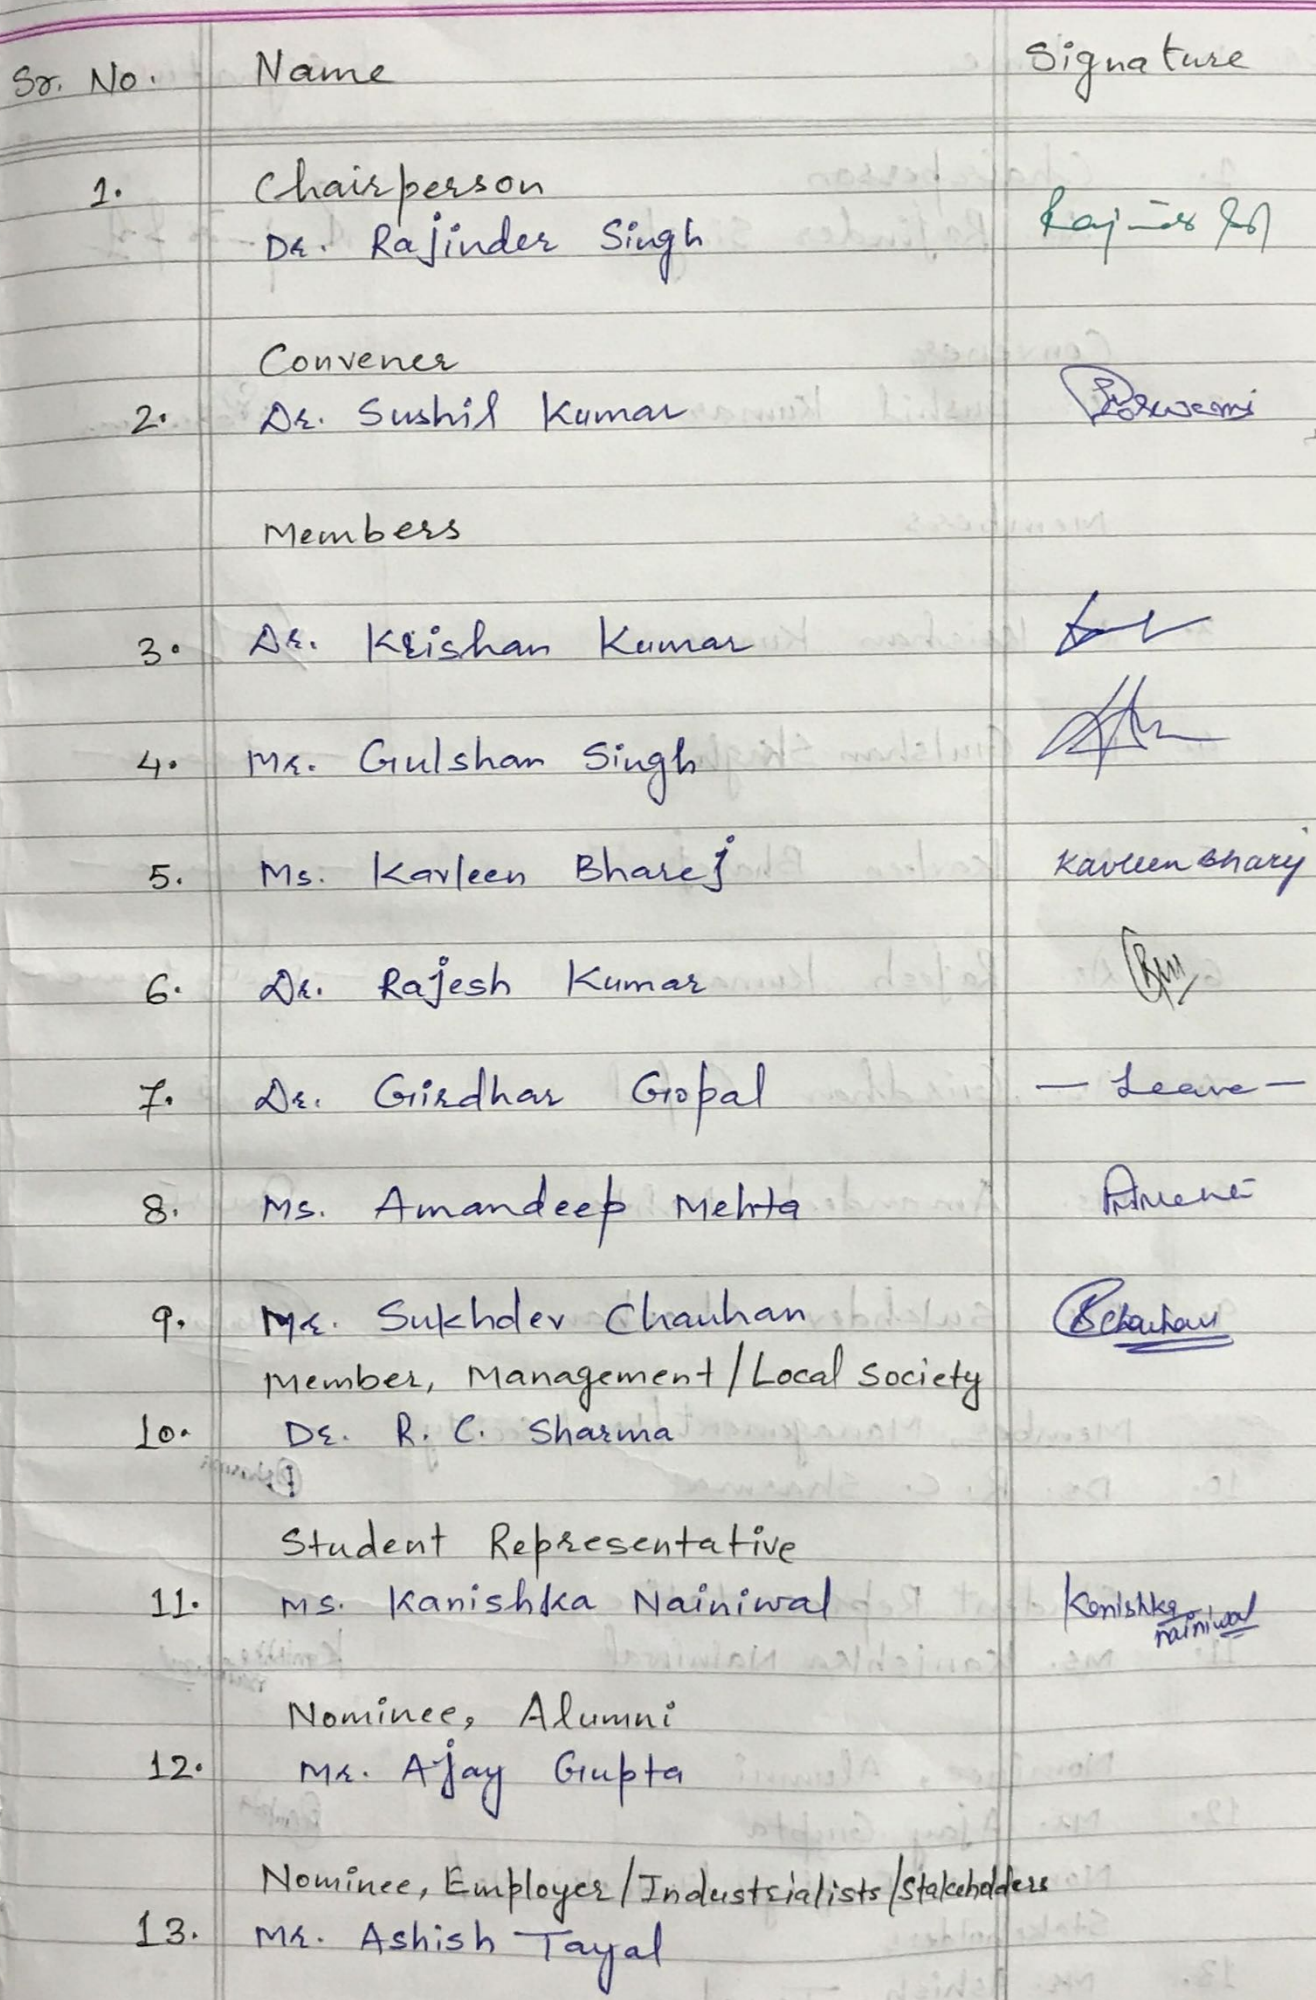 Sr. No. Name Signature
1. Chairperson
Dr. Rajinder Singh
Convener
2. Dr. Sushil Kumar
Members
3. Dr. Krishan Kumar
4. Mr. Gulshan Singh
5. Ms. Kavleen Bharej Kavleen Bharej
6. Dr. Rajesh Kumar
7. Dr. Girdhar Gopal — Leave —
8. Ms. Amandeep Mehta
9. Mr. Sukhdev Chauhan
Member, Management/Local Society
10. Dr. R. C. Sharma
Student Representative
11. Ms. Kanishka Nainiwal Kanishka
nainiwal
Nominee, Alumni
12. Mr. Ajay Gupta
Nominee, Employer/Industrialists/Stakeholders
13. Mr. Ashish Tayal